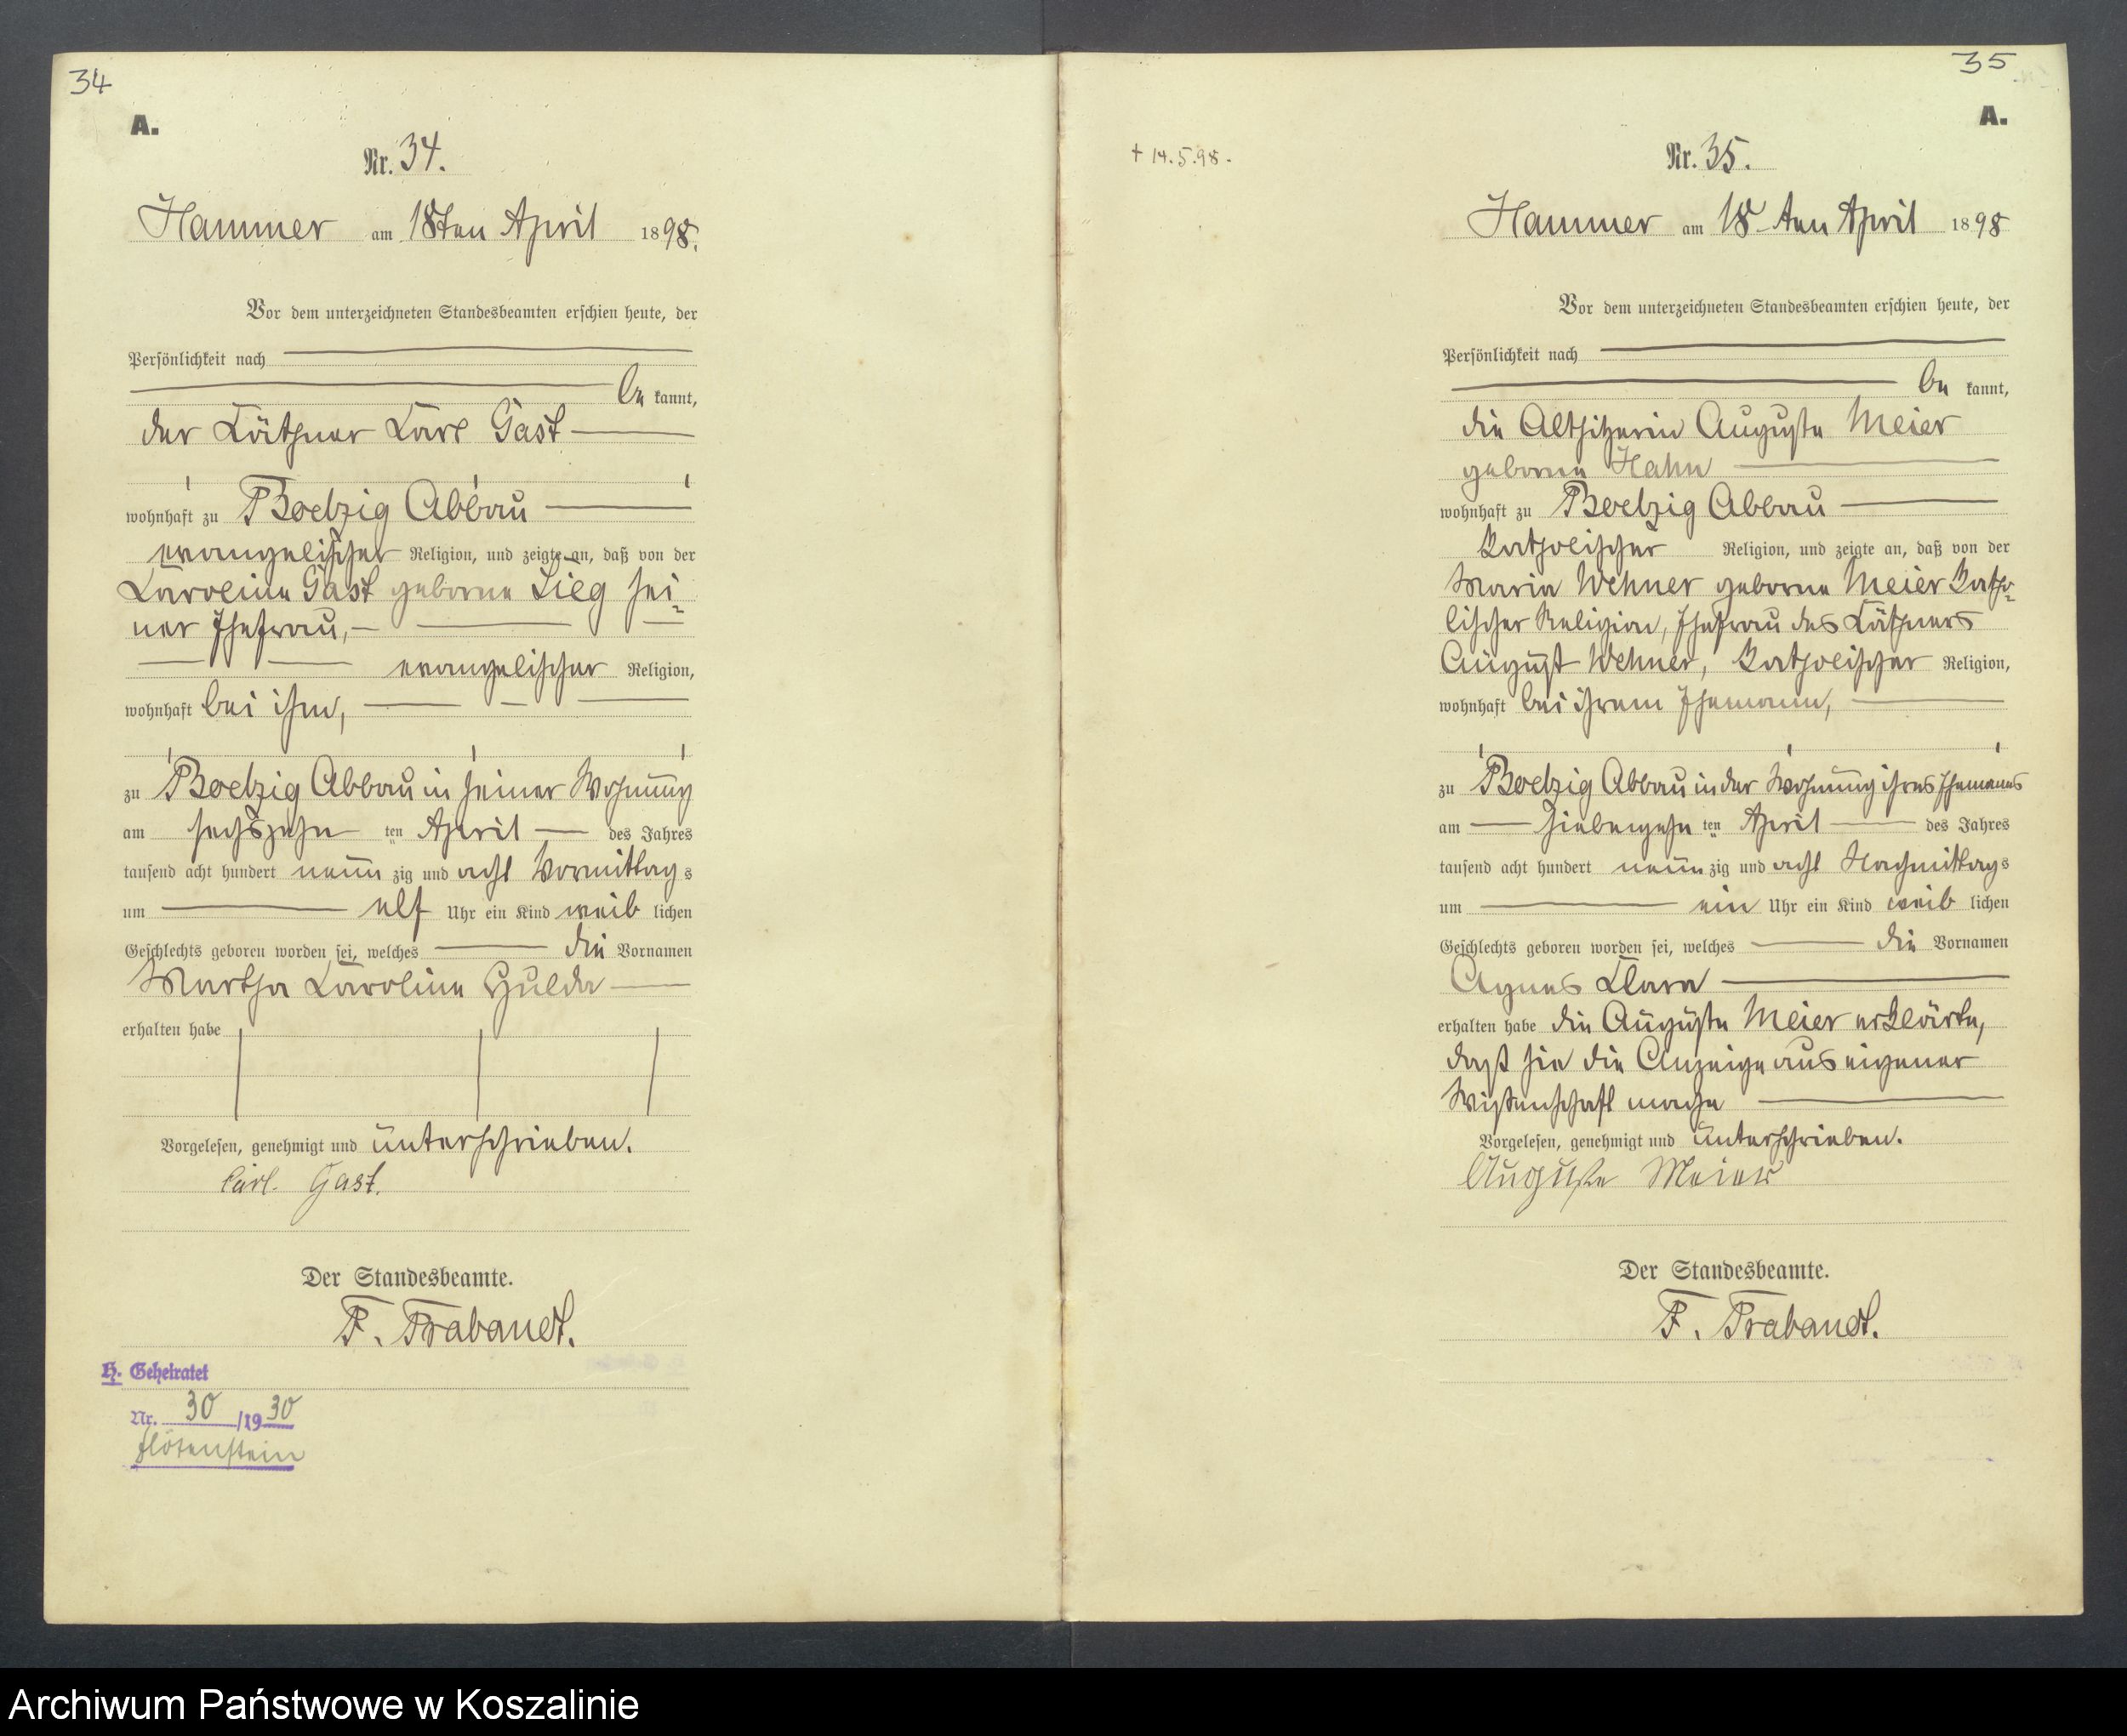 34
A.
Nr. 34.
Hammer am 18ten April 1898.
Vor dem unterzeichneten Standesbeamten erschien heute, der
Persönlichkeit nach
be kannt,
der Käthner Karl Gast
wohnhaft zu Poelzig Abbau
evangelischer Religion, und zeigte an, daß von der
Karoline Gast geborne Lieg sei=
ner Ehefrau,
evangelischer Religion,
wohnhaft bei ihm,
zu Poelzig Abbau in seiner Wohnung
am sechszehn ten April des Jahres
tausend acht hundert neun zig und acht Vormittag s
um elf Uhr ein Kind weib lichen
Geschlechts geboren worden sei, welches die Vornamen
Martha Karoline Hulda
erhalten habe
Vorgelesen, genehmigt und unterschrieben.
Carl. Gast.
Der Standesbeamte.
F. Trabandt.
H. Geheiratet
Nr. 30 /1930
Flötenstein
35
A.
+ 14.5.98.
Nr. 35.
Hammer am 18-ten April 1898
Vor dem unterzeichneten Standesbeamten erschien heute, der
Persönlichkeit nach
be kannt,
die Altsitzerin Auguste Meier
geborne Hahn
wohnhaft zu Poelzig Abbau
katholischer Religion, und zeigte an, daß von der
Maria Wehner geborne Meier katho=
lischer Religion, Ehefrau des Käthners
August Wehner, katholischer Religion,
wohnhaft bei ihrem Ehemann,
zu Poelzig Abbau in der Wohnung ihres Ehemanns
am siebenzehn ten April des Jahres
tausend acht hundert neun zig und acht Nachmittag s
um ein Uhr ein Kind weib lichen
Geschlechts geboren worden sei, welches die Vornamen
Agnes Klara
erhalten habe die Auguste Meier erklärte,
daß sie die Anzeige aus eigener
Wißenschaft mache
Vorgelesen, genehmigt und unterschrieben.
Auguste Meier
Der Standesbeamte.
F. Trabandt.
Archiwum Państwowe w Koszalinie